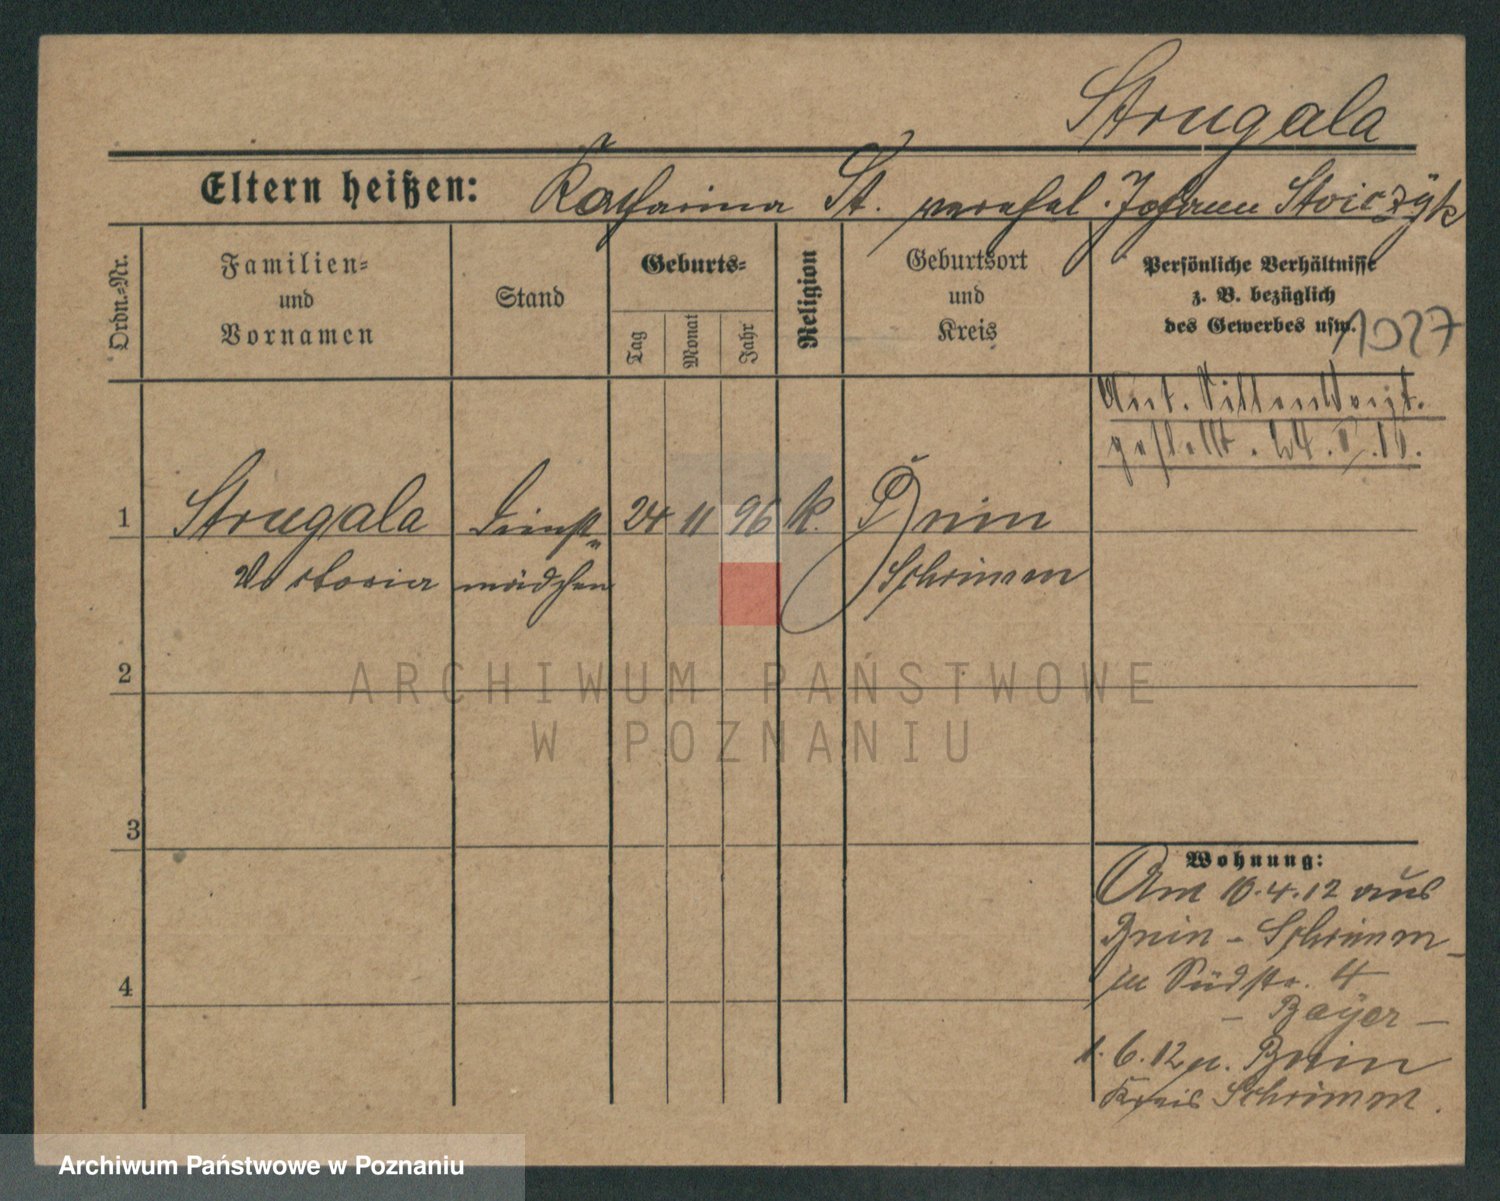 Strugala
Eltern heißen: Katharina St. verehel. Johann Stoiczÿk
Ordn.-Nr.
Familien-
und
Vornamen
Stand
Geburts-
Tag
Monat
Jahr
Religion
Geburtsort
und
Kreis
Persönliche Verhältnisse
z. B. bezüglich
des Gewerbes usw.
1027
gestellt. 24.
1 Strugala Dienst- 24 11 96 k. Bnin
Victoria mädchen Schrimm
2
3
4
ARCHIWUM PAŃSTWOWE
W POZNANIU
Wohnung:
Am 10.4.12 aus
Bnin - Schrimm -
in Südstr. 4
- Bayer -
1.6.12 n. Bnin
Kreis Schrimm.
Archiwum Państwowe w Poznaniu